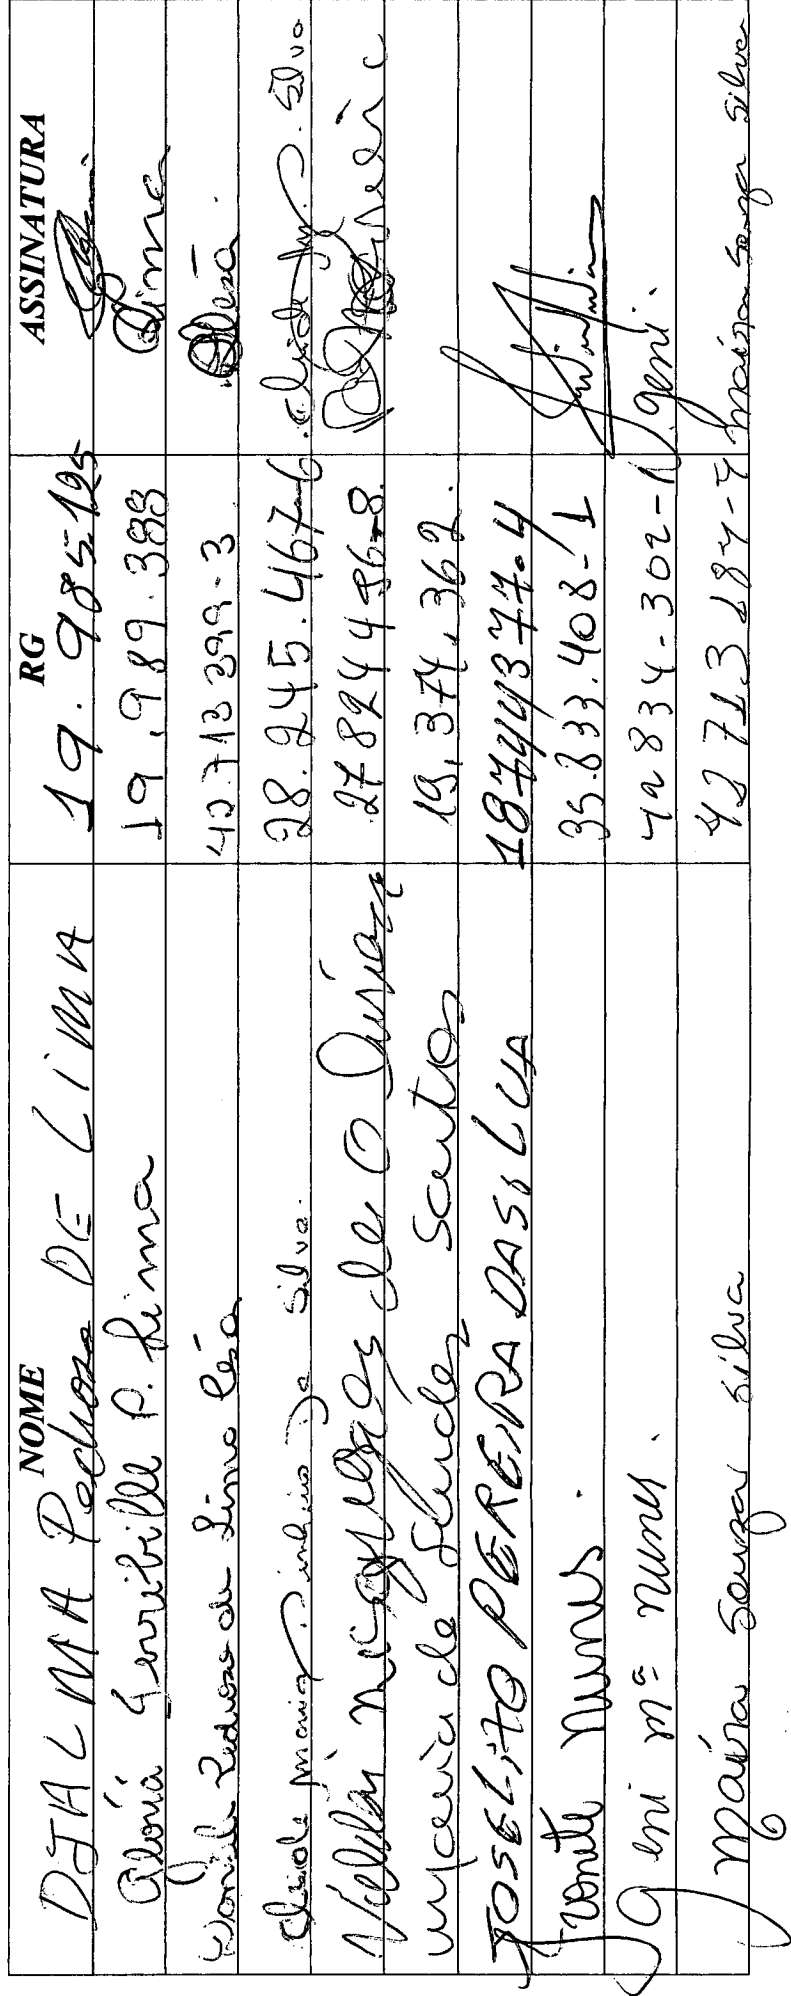 NOME RG ASSINATURA
DJALMA Pedroso DE LIMA 19.985.125
Gloria Genribille P. Lima 19.989.388 Lima
Wanda Pedroso de Lima Cesa 42713299-3
Cleide maria Pinheiro Da Silva. 28.245.467-6 Cleide m. P. Silva
Valdir marques de Oliveira 278244968
maria de Lurdes Santos 19.374.362.
JOSELITO PEREIRA DA SILVA 187444377.4
Ivonete Nunes. 35.833.408-1
Geni mª nunes. 42834-302-1 geni.
maíra souza silva 42713187-7 maíra souza silva